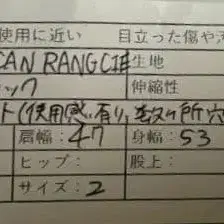 使用に近い 目立った傷や
CAN RANGCIE 生地
ック 伸縮性
ト(使用感有り、数ヶ所穴
肩幅:47 身幅:53
ヒップ: 股上:
サイズ:2